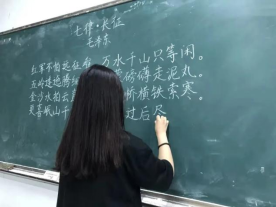 七律·长征
毛泽东
红军不怕远征难 万水千山只等闲。
五岭逶迤腾细 磅礴走泥丸。
金沙水拍云 桥横铁索寒。
更喜岷山千 过后尽